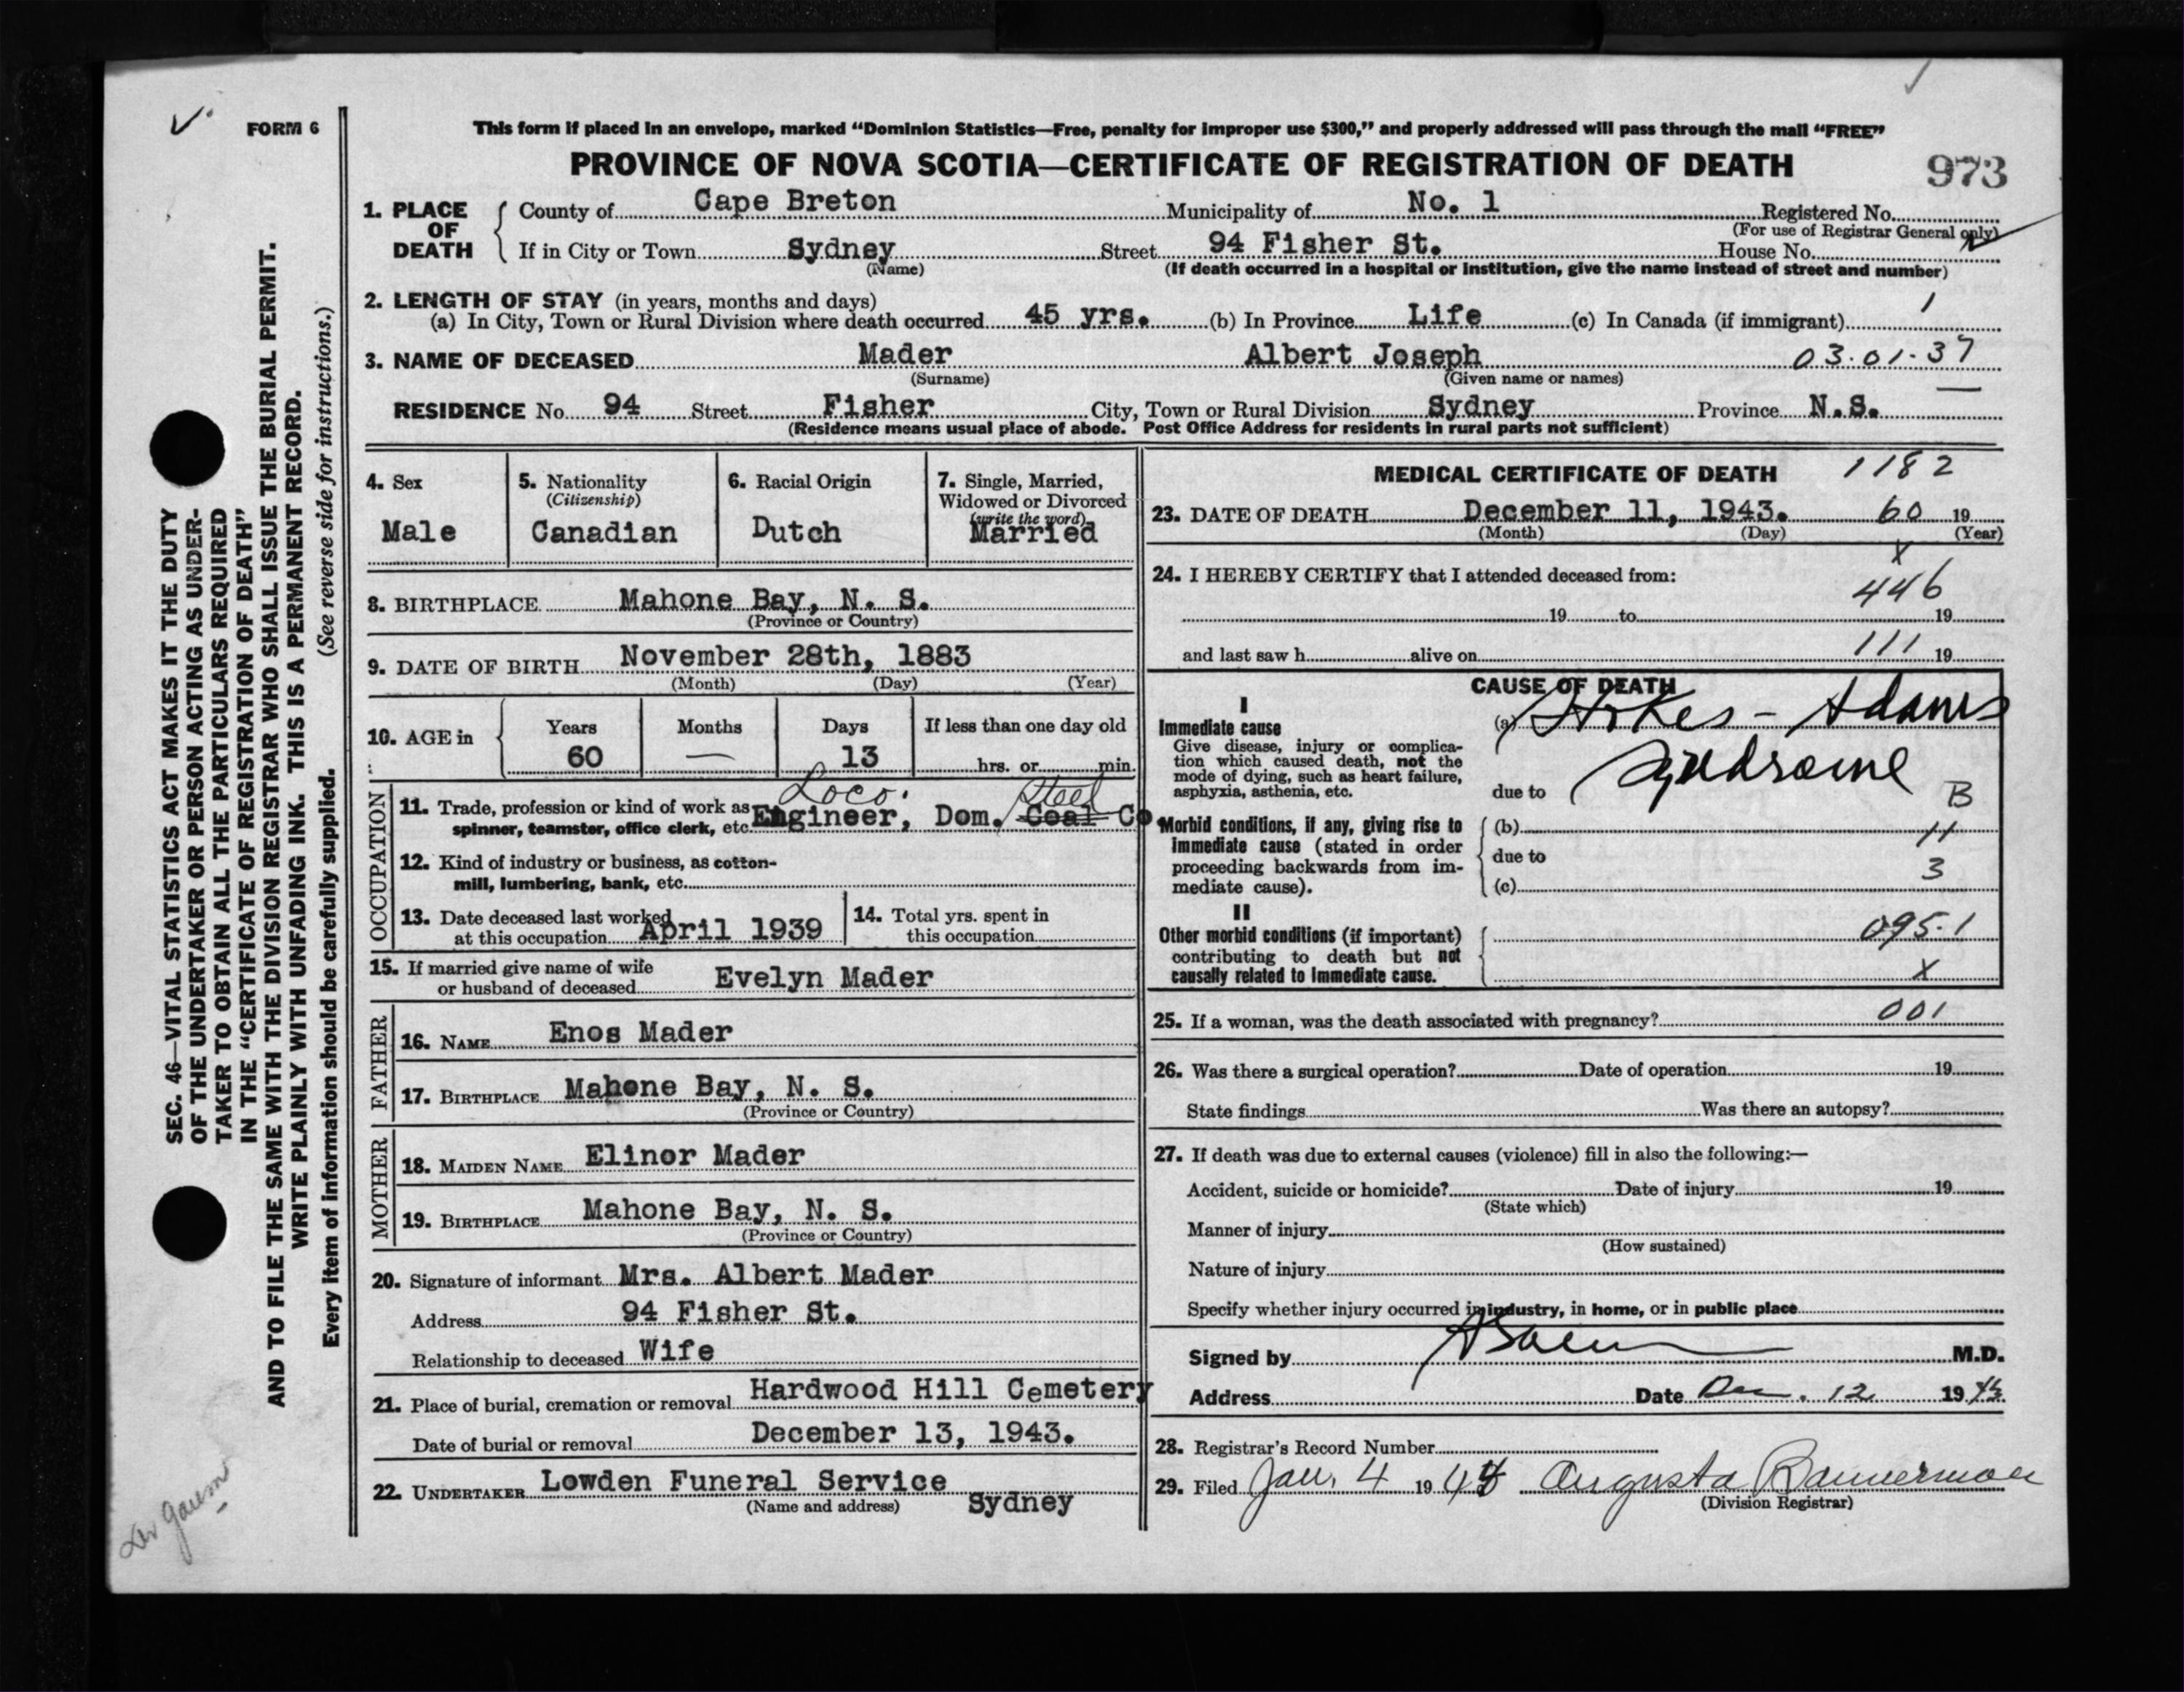 FORM 6
This form if placed in an envelope, marked “Dominion Statistics—Free, penalty for improper use $300,” and properly addressed will pass through the mail “FREE”
PROVINCE OF NOVA SCOTIA—CERTIFICATE OF REGISTRATION OF DEATH
973
SEC. 46—VITAL STATISTICS ACT MAKES IT THE DUTY
OF THE UNDERTAKER OR PERSON ACTING AS UNDER-
TAKER TO OBTAIN ALL THE PARTICULARS REQUIRED
IN THE “CERTIFICATE OF REGISTRATION OF DEATH”
AND TO FILE THE SAME WITH THE DIVISION REGISTRAR WHO SHALL ISSUE THE BURIAL PERMIT.
WRITE PLAINLY WITH UNFADING INK. THIS IS A PERMANENT RECORD.
Every item of information should be carefully supplied. (See reverse side for instructions.)
1. PLACE OF DEATH
County of Cape Breton Municipality of No. 1 Registered No.
(For use of Registrar General only)
If in City or Town Sydney Street 94 Fisher St. House No.
(Name) (If death occurred in a hospital or institution, give the name instead of street and number)
2. LENGTH OF STAY (in years, months and days)
(a) In City, Town or Rural Division where death occurred 45 yrs. (b) In Province Life (c) In Canada (if immigrant) 1
3. NAME OF DECEASED Mader Albert Joseph 03.01.37
(Surname) (Given name or names)
RESIDENCE No. 94 Street Fisher City, Town or Rural Division Sydney Province N.S.
(Residence means usual place of abode. Post Office Address for residents in rural parts not sufficient)
4. Sex
Male
5. Nationality
(Citizenship)
Canadian
6. Racial Origin
Dutch
7. Single, Married,
Widowed or Divorced
(write the word)
Married
8. BIRTHPLACE Mahone Bay, N. S.
(Province or Country)
9. DATE OF BIRTH November 28th, 1883
(Month) (Day) (Year)
10. AGE in
Years Months Days If less than one day old
60 — 13 hrs. or min.
OCCUPATION
Loco. Steel
11. Trade, profession or kind of work as Engineer, Dom. Coal Co.
spinner, teamster, office clerk, etc.
12. Kind of industry or business, as cotton-
mill, lumbering, bank, etc.
13. Date deceased last worked
at this occupation April 1939
14. Total yrs. spent in
this occupation
15. If married give name of wife
or husband of deceased Evelyn Mader
FATHER
16. NAME Enos Mader
17. BIRTHPLACE Mahone Bay, N. S.
(Province or Country)
MOTHER
18. MAIDEN NAME Elinor Mader
19. BIRTHPLACE Mahone Bay, N. S.
(Province or Country)
20. Signature of informant Mrs. Albert Mader
Address 94 Fisher St.
Relationship to deceased Wife
21. Place of burial, cremation or removal Hardwood Hill Cemetery
Date of burial or removal December 13, 1943.
22. UNDERTAKER Lowden Funeral Service
(Name and address) Sydney
MEDICAL CERTIFICATE OF DEATH 1182
23. DATE OF DEATH December 11, 1943. 60 19
(Month) (Day) (Year)
X
24. I HEREBY CERTIFY that I attended deceased from:
446
19 to 19
and last saw h alive on 111 19
CAUSE OF DEATH
I
Immediate cause
Give disease, injury or complica-
tion which caused death, not the
mode of dying, such as heart failure,
asphyxia, asthenia, etc.
(a) Stokes - Adams
Syndrome
due to
B
Morbid conditions, if any, giving rise to
immediate cause (stated in order
proceeding backwards from im-
mediate cause).
(b) 11
due to
3
(c)
II
Other morbid conditions (if important)
contributing to death but not
causally related to immediate cause.
095.1
X
25. If a woman, was the death associated with pregnancy? 001
26. Was there a surgical operation? Date of operation 19
State findings Was there an autopsy?
27. If death was due to external causes (violence) fill in also the following:—
Accident, suicide or homicide? Date of injury 19
(State which)
Manner of injury
(How sustained)
Nature of injury
Specify whether injury occurred in industry, in home, or in public place
Signed by M.D.
Address Date Dec. 12 1943
28. Registrar's Record Number
29. Filed Jan. 4 1944 Augusta Bannerman
(Division Registrar)